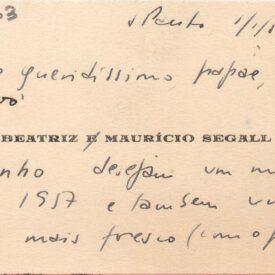 63
S Paulo 1/1/
queridíssimo, papae,
vô
BEATRIZ E MAURÍCIO SEGALL
nho desejam um
1957 e também
mais fresco (como